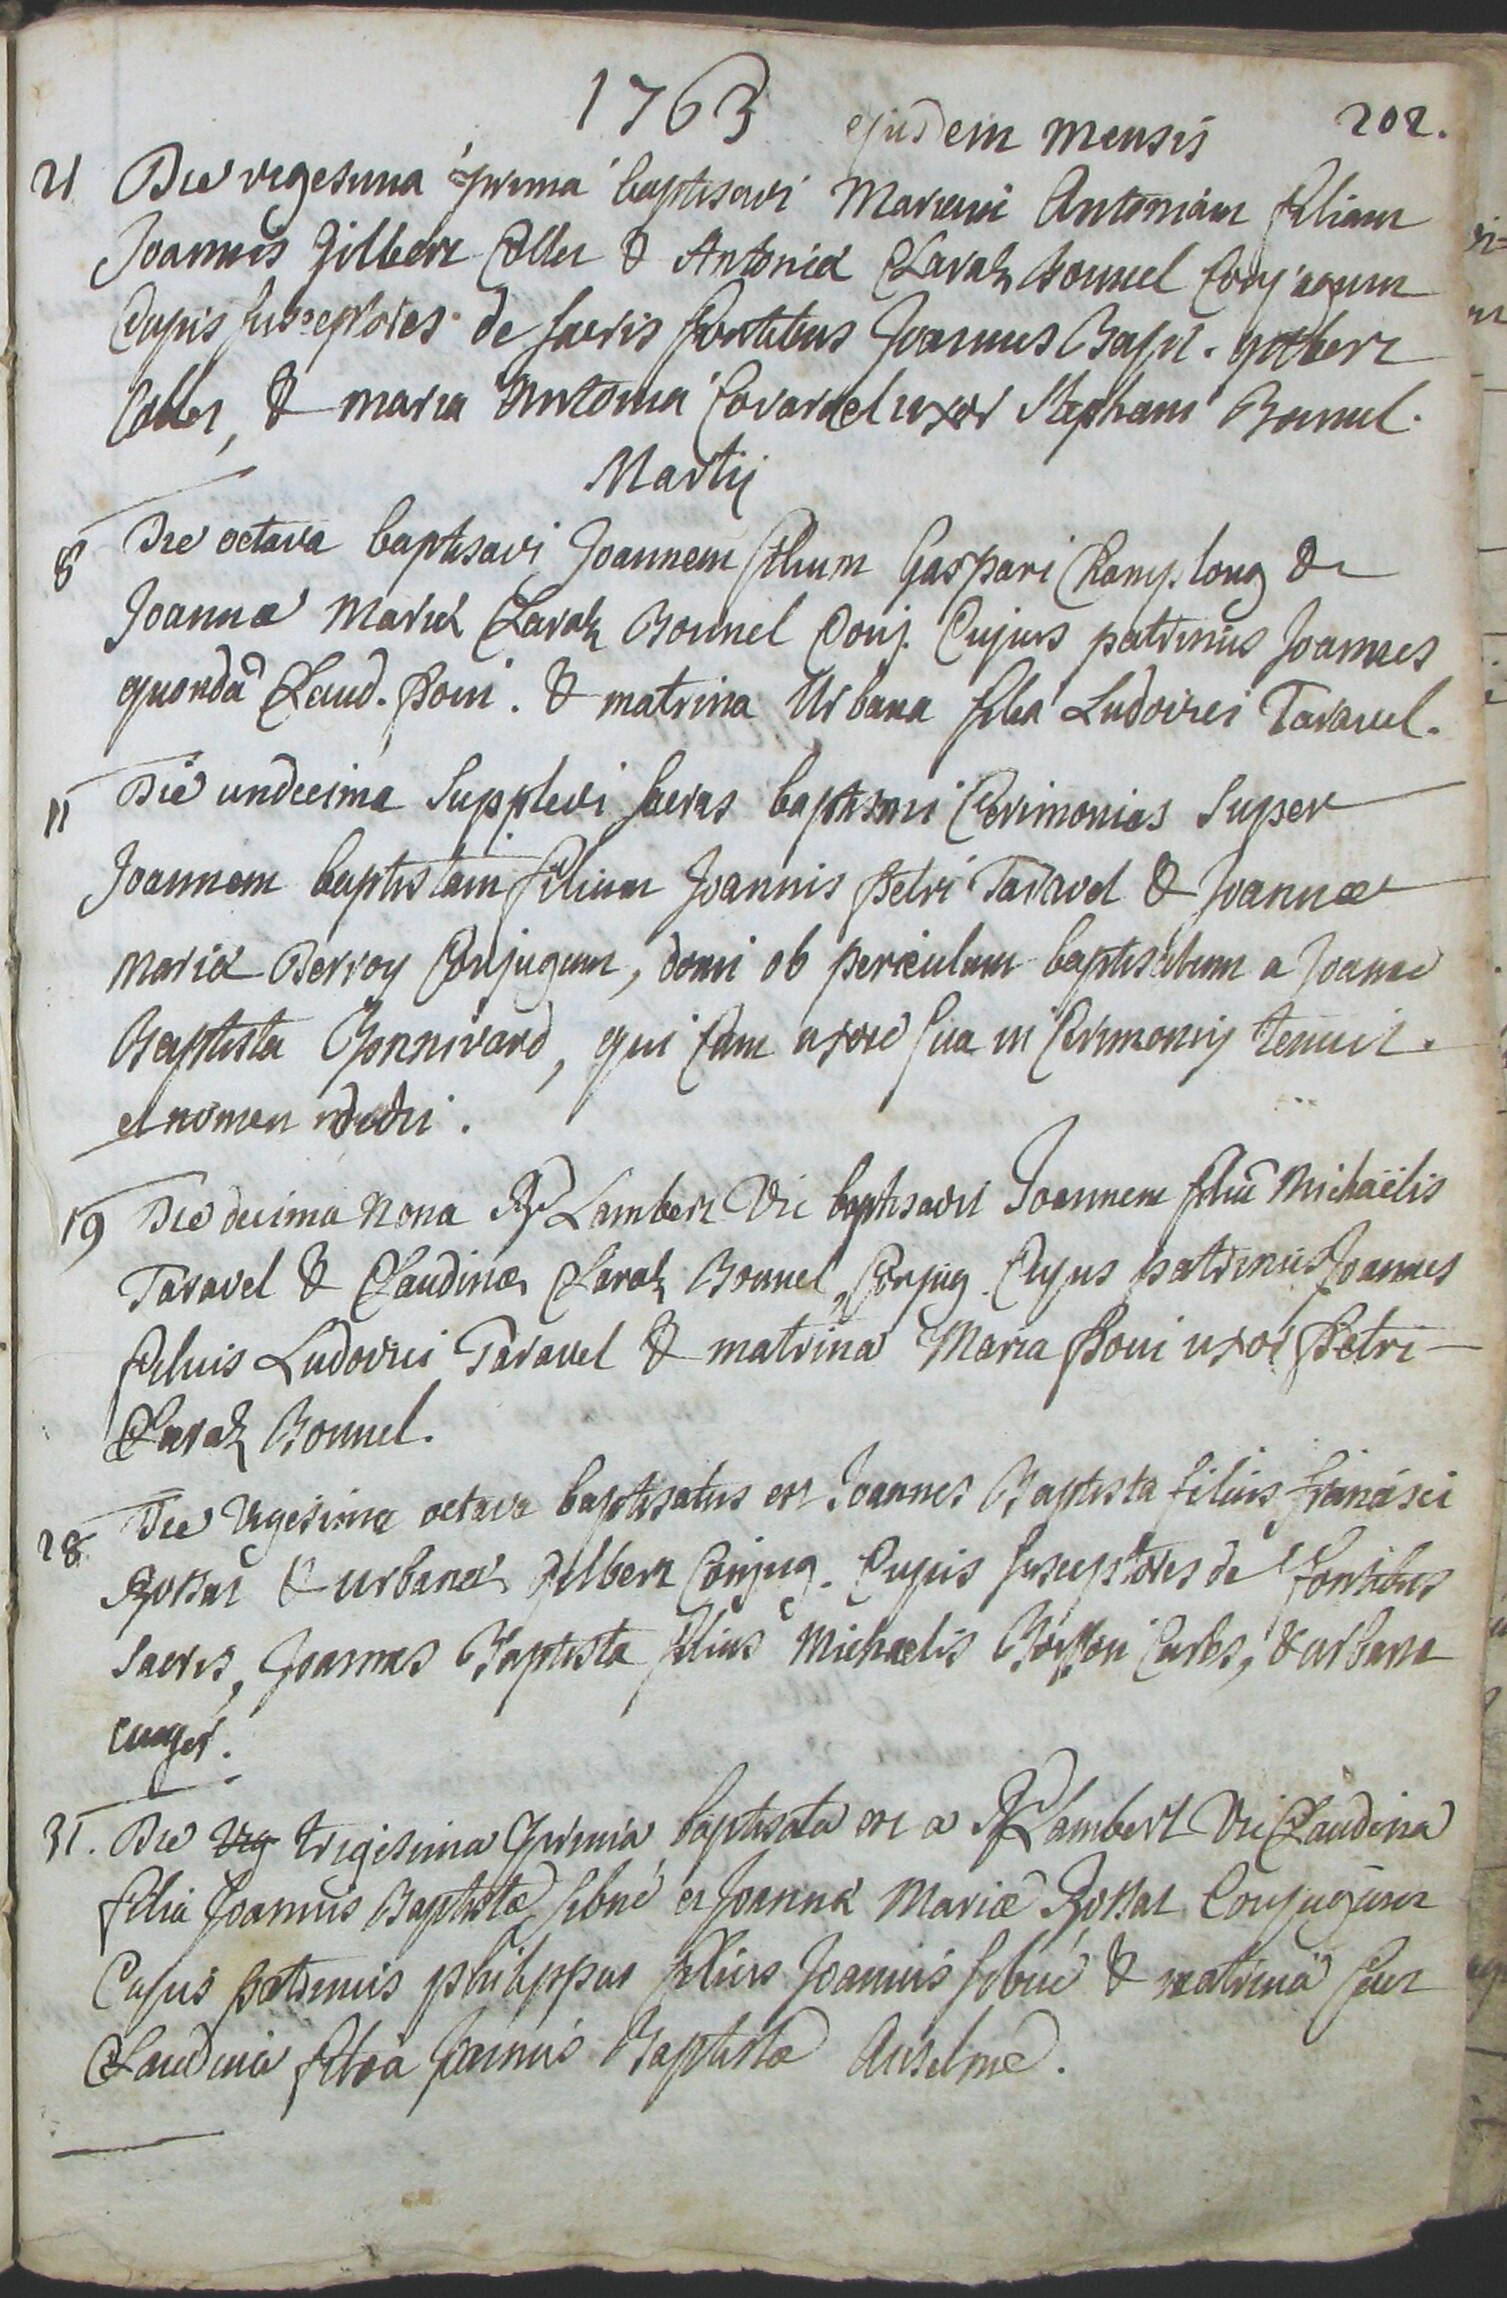 1763 ejusdem mensis 202.
21 Die vigesima prima baptisavi Mariam Antoniam filiam
Joannis Gilbert Collet & Antoniæ Claraz Bonnel Conjugum
Cujus susceptores de sacris fontibus Joannes Bapt. gilbert
Collet, & maria Antonia Covarel uxor Stephani Bonnel.
Martij
8 Die octava baptisavi Joannem filium Gaspari Champlong &
Joannæ Mariæ Claraz Bonnel Conj. Cujus patrinus Joannes
quondā Claud. Poui. & matrina Urbana filia Ludovici Taravel.
11 Die undecima Supplevi sacras baptismi Cerimonias Super
Joannem baptistam filium Joannis Petri Taravel & Joannæ
Mariæ Derroy Conjugum, domi ob periculum baptisatum a Joanne
Baptista Bonnivard, qui cum uxore sua in Cerimonijs tenuit.
et nomen dedit.
19 Die decima nona Rd Lambert Vic baptisavit Joannem filiū Michaëlis
Taravel & Claudinæ Claraz Bonnel, Conjug. Cujus patrinus Joannes
filius Ludovici Taravel & matrina Maria Poui uxor Petri
Claraz Bonnel.
28 Die Vigesima octava baptisatus est Joannes Baptista filius francisci
Rossat & urbanæ Gilbert Conjug. Cujus susceptores de fontibus
sacris, Joannes Baptista filius Michaelis Boisson Carles, & urbana
31. Die Vig trigesima prima baptisata est a Rd Lambert Vic Claudina
filia Joannis Baptistæ sibué et Joannæ Mariæ Rossat Conjugum
Cujus patrinus philippus filius Joannis sibué & matrina fuit
Claudina filia Joannis Baptistæ Anselme.